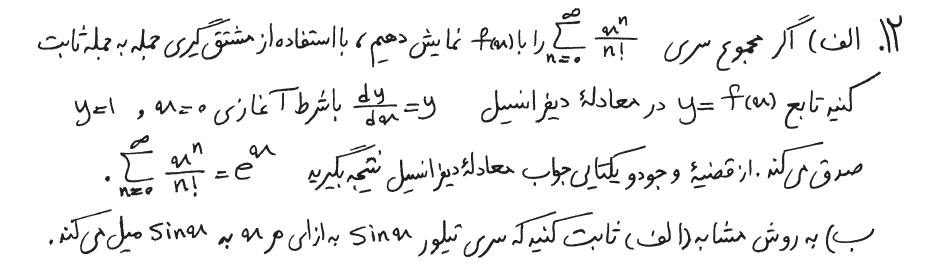 ۱۲. الف) اگر مجموع سری $\sum_{n=0}^{\infty} \frac{x^n}{n!}$ را با f(x) نمایش دهیم، با استفاده از مشتق گیری جمله به جمله ثابت
کنید تابع y = f(x) در معادلهٔ دیفرانسیل $\frac{dy}{dx} = y$ با شرط آغازی x=0 و y=1
صدق می‌کند. از قضیهٔ وجود و یکتایی جواب معادلهٔ دیفرانسیل نتیجه بگیرید $\sum_{n=0}^{\infty} \frac{x^n}{n!} = e^x$.
ب) به روش مشابه (الف) ثابت کنید که سری تیلور sin x به ازای هر x به sin x میل می‌کند.